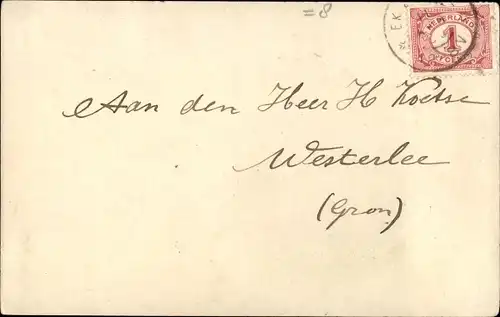 =8
NEDERLAND
1
Aan den Heer H Koetse
Westerlee
(Gron)